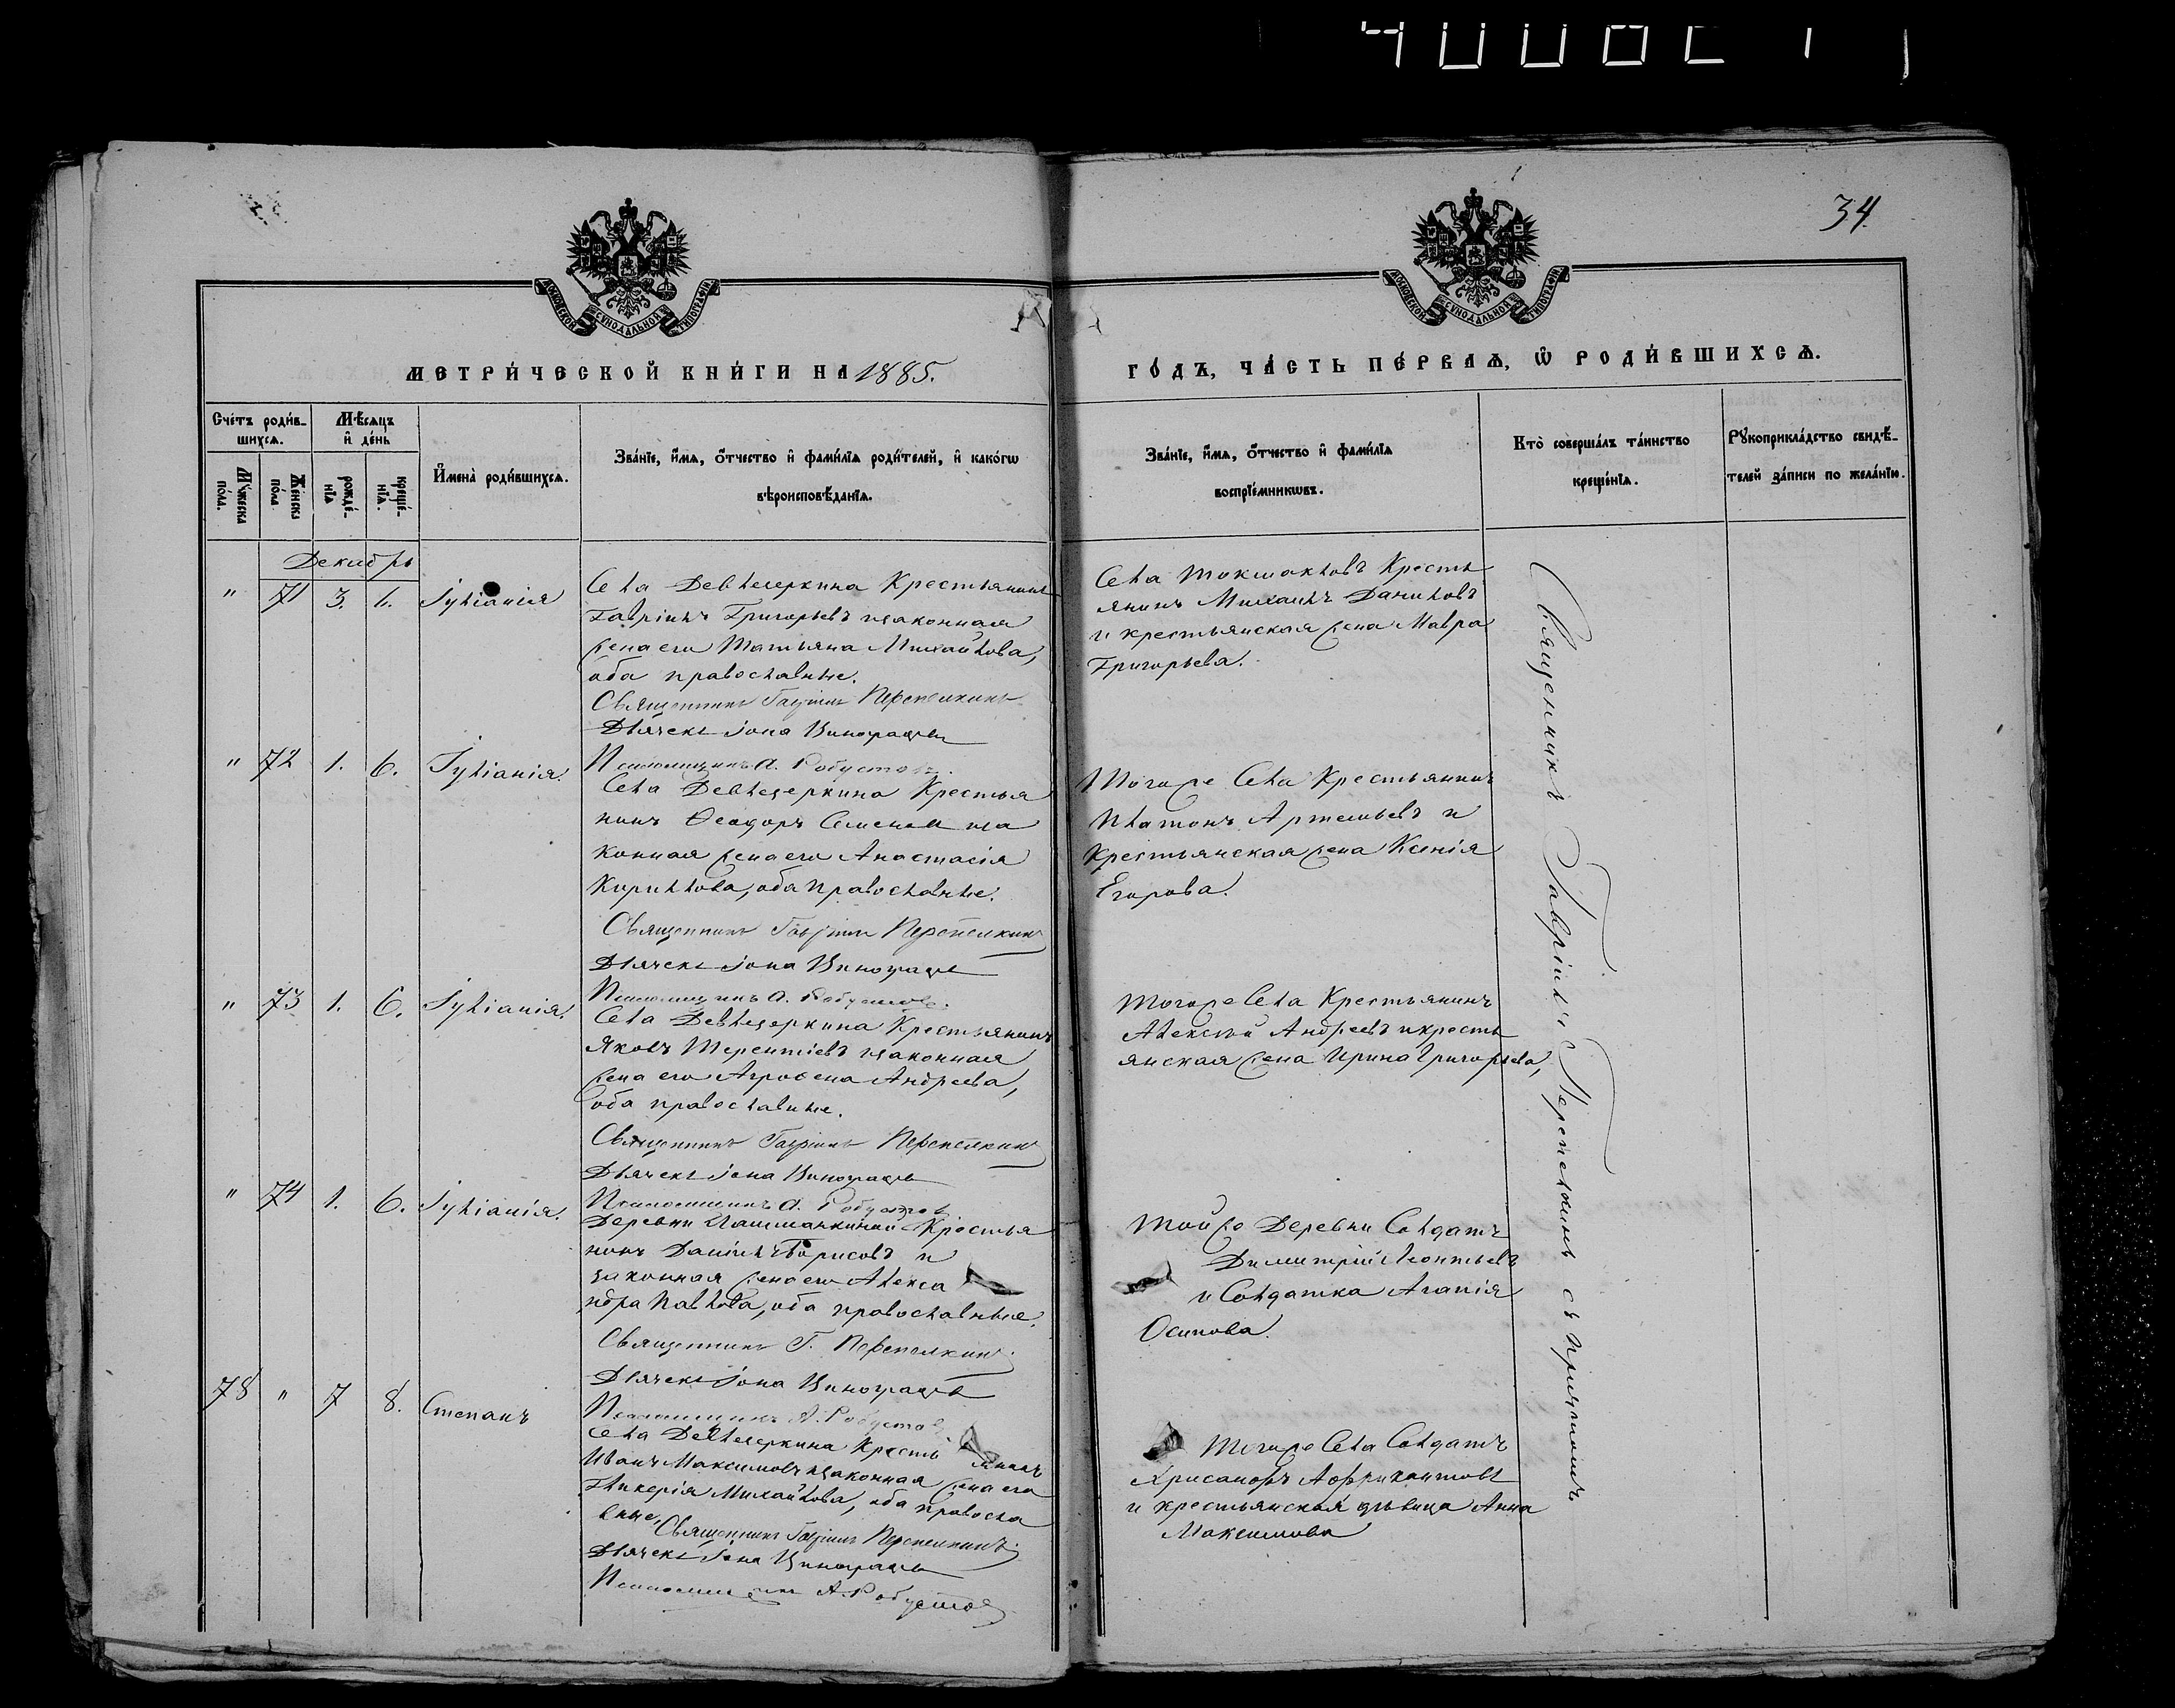 34.
МОСКОВСКОЙ СѴНОДАЛЬНОЙ ТИПОГРАФІИ
МОСКОВСКОЙ СѴНОДАЛЬНОЙ ТИПОГРАФІИ
МЕТРИ́ЧЕСКОЙ КНИ́ГИ НА 1885.
ГО́ДЪ, ЧА́СТЬ ПЕ́РВАѦ, Ѡ РОДИ́ВШИХСѦ.
Сче́тъ роди́в-
шихсѧ.
Мꙋ́жеска по́ла.
Же́нска по́ла.
Мѣ́сѧцъ
и҆ де́нь
рожде́-
нїѧ
креще́-
нїѧ.
И҆мена̀ роди́вшихсѧ.
Зва́нїе, и҆́мѧ, ѻ҆́тчество и҆ фами́лїѧ роди́телей, и҆ како́гѡ
вѣроисповѣ́данїѧ.
Зва́нїе, и҆́мѧ, ѻ҆́тчество и҆ фами́лїѧ
воспрїе́мникѡвъ.
Кто̀ соверша́лъ та́инство
креще́нїѧ.
Рꙋкоприкла́дство свидѣ́-
телей за́писи по жела́нїю.
Декабрь
" 71 3. 6. Іуліанія
Села Девлезеркина Крестьянинъ
Гавріилъ Григорьевъ изаконная
жена его Татьяна Михайлова,
оба православные.
Священникъ Гавріилъ Перепелкинъ
Дьячекъ Іона Виноградовъ
Псаломщикъ А. Робустовъ.
Села Токмаклов Кресть
янинъ Михаилъ Даниловъ
и крестьянская жена Мавра
Григорьева.
" 72 1. 6. Іуліанія.
Села Девлезеркина Крестья
нинъ Ѳеодоръ Семеновъ иза
конная жена его Анастасія
Кириллова, оба православные.
Священникъ Гавріилъ Перепелкинъ
Дьячекъ Іона Виноградовъ
Псаломщикъ А. Робустовъ.
Тогоже Села Крестьянинъ
Платонъ Артемьевъ и
Крестьянская жена Ксенія
Егорова.
" 73 1. 6. Іуліанія.
Села Девлезеркина Крестьянинъ
Яковъ Терентіевъ изаконная
жена его Агрофена Андреева,
оба православные.
Священникъ Гавріилъ Перепелкинъ
Дьячекъ Іона Виноградовъ
Псаломщикъ А. Робустовъ
Тогоже Села Крестьянинъ
Алексѣй Андреевъ и кресть
янская жена Ирина Григорьева,
" 74 1. 6. Іуліанія.
Деревни Крестья
нинъ Даніилъ Борисовъ и
законная жена его Алекса
ндра Павлова, оба православные.
Священникъ Г. Перепелкинъ
Дьячекъ Іона Виноградовъ
Псаломщикъ А. Робустовъ
Тойже Деревни Солдатъ
Димитрій Леонтьевъ
и Солдатка Агапія
Осипова.
78 " 7 8. Степанъ
Села Девлезеркина Крестьянинъ
Иванъ Максимовъ изаконная жена его
Гликерія Михайлова, оба правосла
вные,
Священникъ Гавріилъ Перепелкинъ
Дьячекъ Іона Виноградовъ
Псаломщикъ А. Робустовъ
Тогоже Села Солдатъ
Хрисанфъ
и крестьянская дѣвица Анна
Максимова
Священникъ Гавріилъ Перепелкинъ съ причтомъ